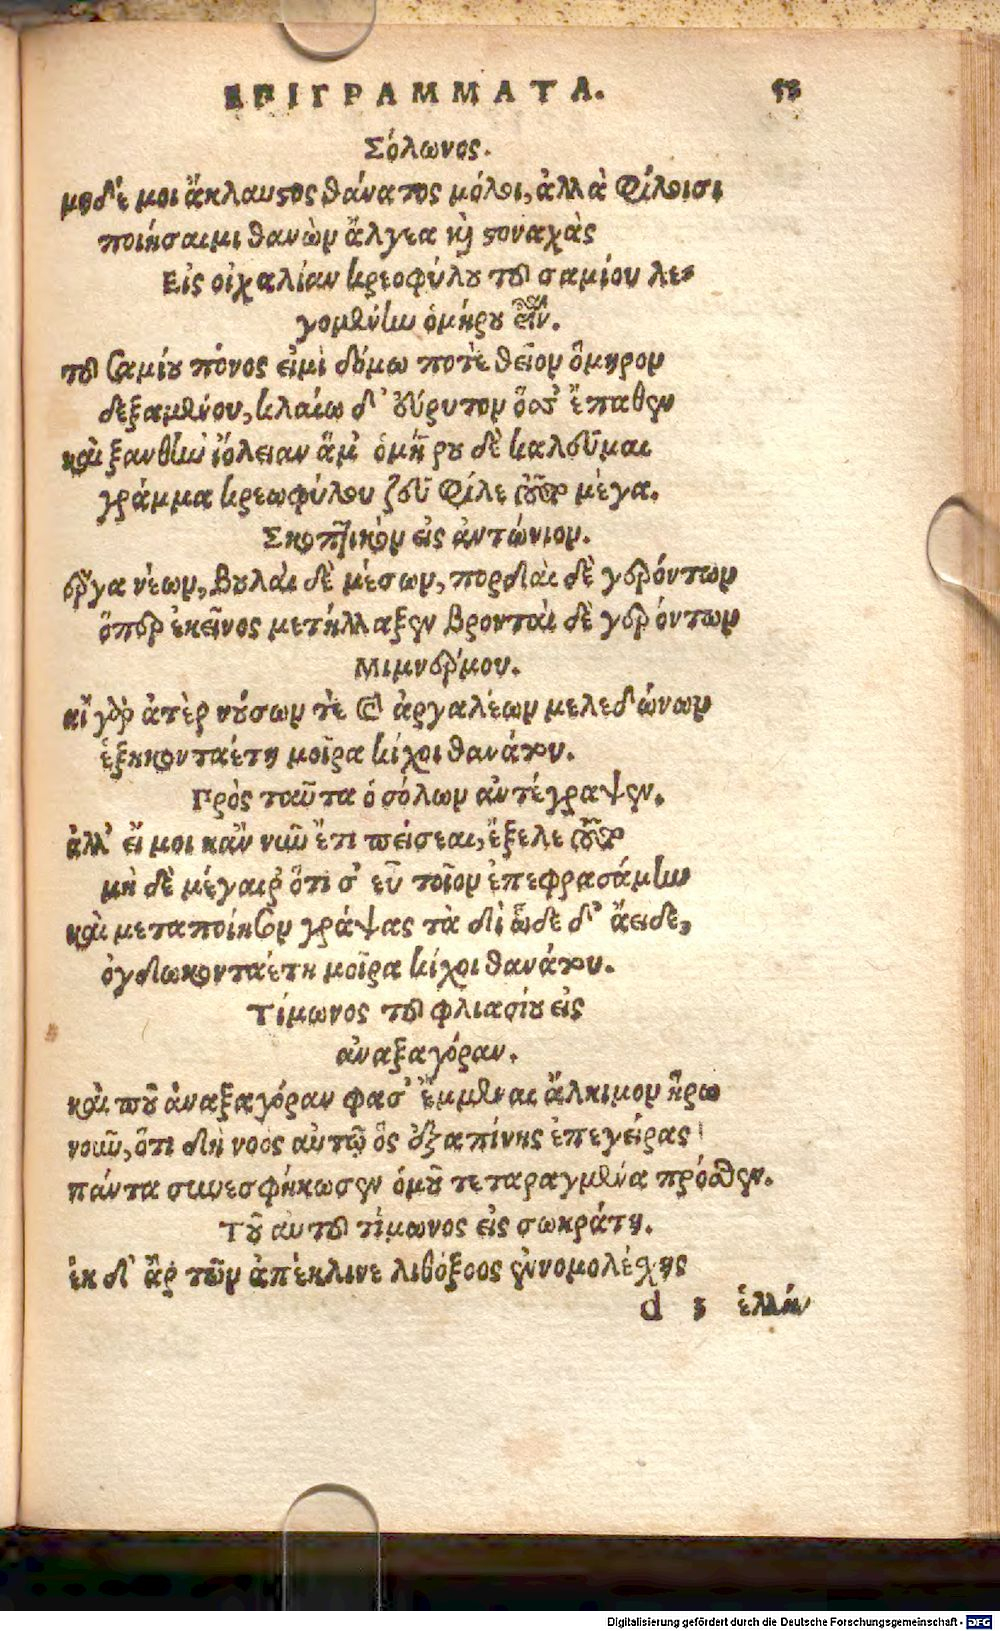 ΕΠΙΓΡΑΜΜΑΤΑ. 53
Σόλωνος.
μηδέ μοι ἄκλαυστος θάνατος μόλοι, ἀλλὰ φίλοισι
ποιήσαιμι θανὼν ἄλγεα καὶ στοναχὰς
Εἰς οἰχαλίαν κρεοφύλου τοῦ σαμίου λε-
γομένην ὁμήρου εἶναι.
τοῦ σαμίου πόνος εἰμὶ δόμω ποτὲ θεῖον ὅμηρον
δεξαμένου, κλαίω δ' εὔρυτον ὅσσ' ἔπαθεν
καὶ ξανθὴν ἰόλειαν ἅμ' ὁμήρου δὲ καλοῦμαι
γράμμα κρεωφύλου ζοῦ φίλε τοῦτο μέγα.
Σκοπτικὸν εἰς ἀντώνιον.
ἔργα νέων, βουλαὶ δὲ μέσων, πορδαὶ δὲ γερόντων
ὅπερ ἐκεῖνος μετήλλαξεν βρονταὶ δὲ γερόντων
Μιμνέρμου.
αἲ γὰρ ἀτὲρ νούσων τὲ καὶ ἀργαλέων μελεδώνων
ἑξηκονταέτη μοῖρα κίχοι θανάτου.
Πρὸς ταῦτα ὁ σόλων ἀντέγραψεν.
ἀλλ' εἴ μοι κἂν νῦν ἔτι πείσεαι, ἔξελε τοῦτο
μὴ δὲ μέγαιρ' ὅτι σ' εὖ τοῖον ἐπεφρασάμην
καὶ μεταποίησον γράψας τὰ δὶ ὧδε δ' ἄειδε,
ὀγδωκονταέτη μοῖρα κίχοι θανάτου.
Τίμωνος τοῦ φλιασίου εἰς
ἀναξαγόραν.
καὶ που ἀναξαγόραν φασ' ἔμμεναι ἄλκιμον ἥρω
νοῦν, ὅτι δὴ νοὸς αὐτῷ ὃς ἐξαπίνης ἐπεγείρας
πάντα συνεσφήκωσεν ὁμοῦ τεταραγμένα πρόσθεν.
Τοῦ αυτοῦ τίμωνος εἰς σωκράτη.
ἐκ δ' ἄρ τῶν ἀπέκλινε λιθόξοος ἐννομολέχης
d 5 ἑλλήν
Digitalisierung gefördert durch die Deutsche Forschungsgemeinschaft - DFG